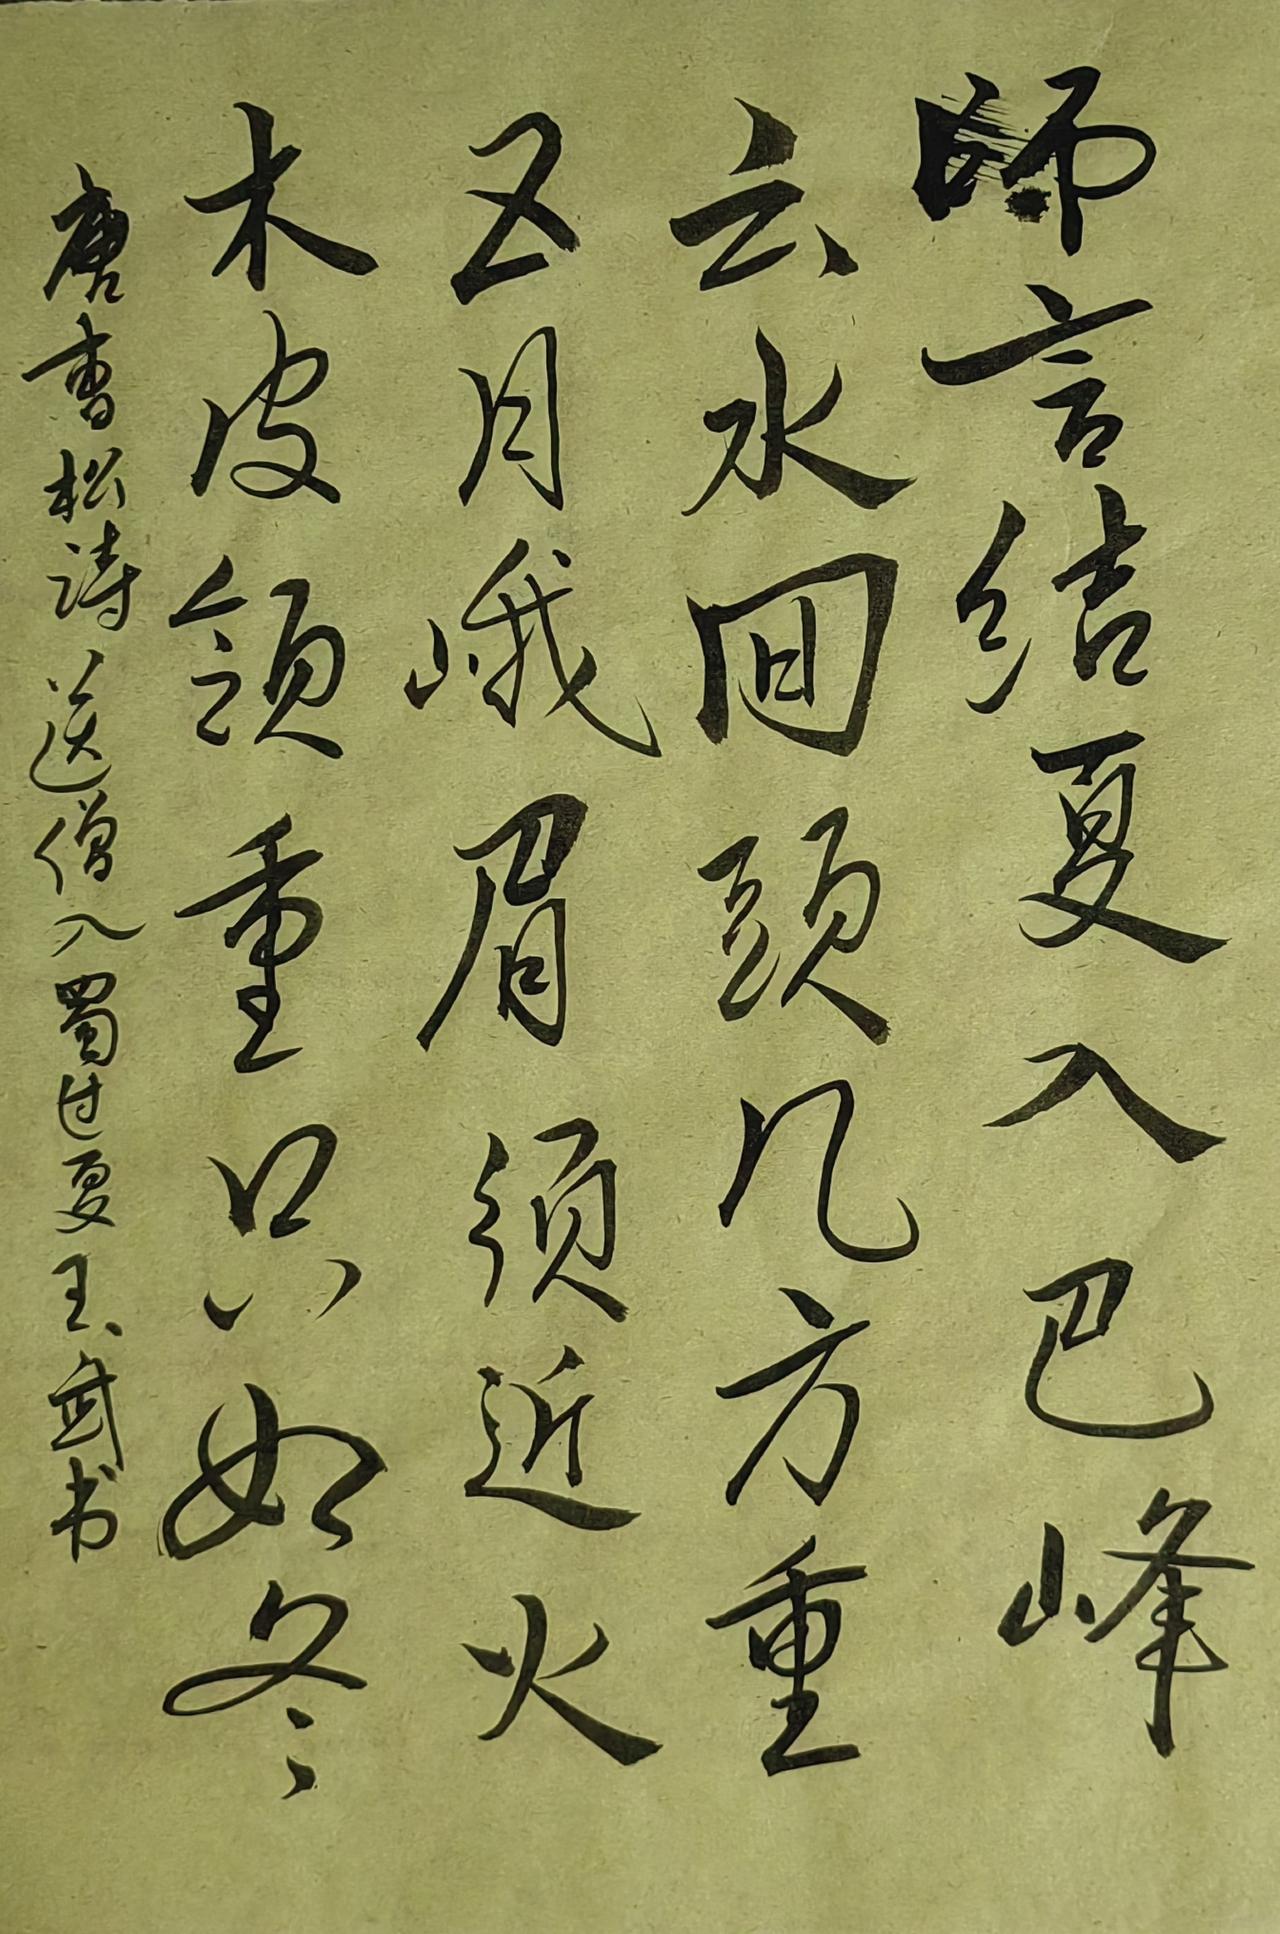 師言结夏入巴峰
云水回頭几方重
五月峨眉须近火
木皮領重只如冬
唐曹松诗送僧入蜀过夏王武书